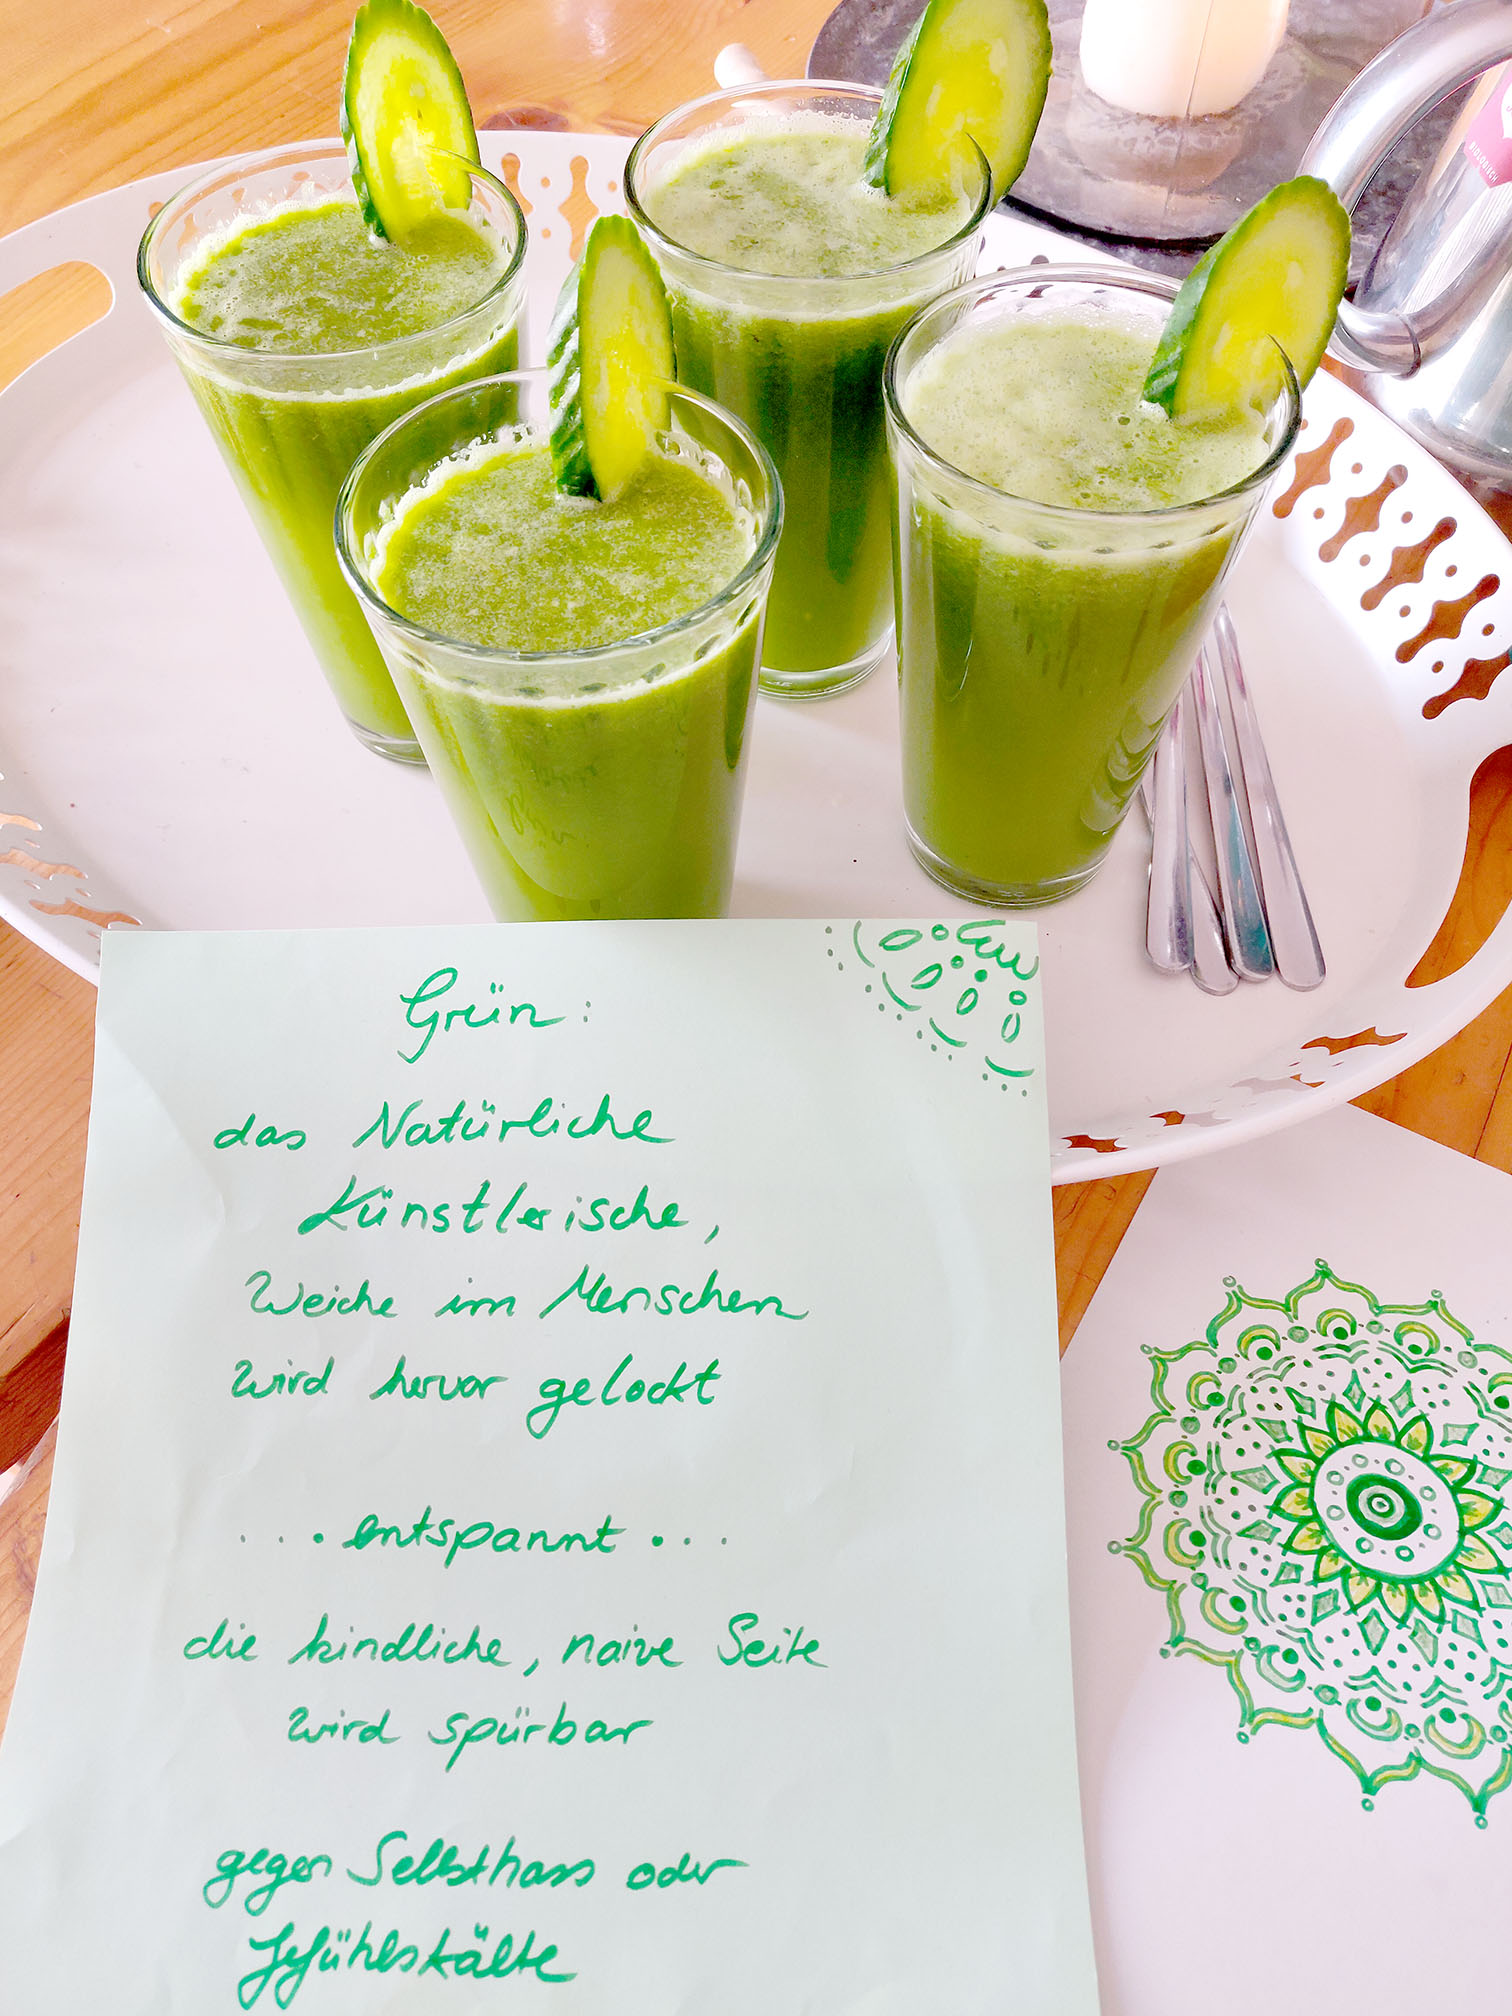 BIOLOGISCH
Grün:
das Natürliche
Künstlerische,
Weiche im Menschen
wird hervor gelockt
...entspannt...
die kindliche, naive Seite
wird spürbar
gegen Selbsthass oder
Gefühlskälte